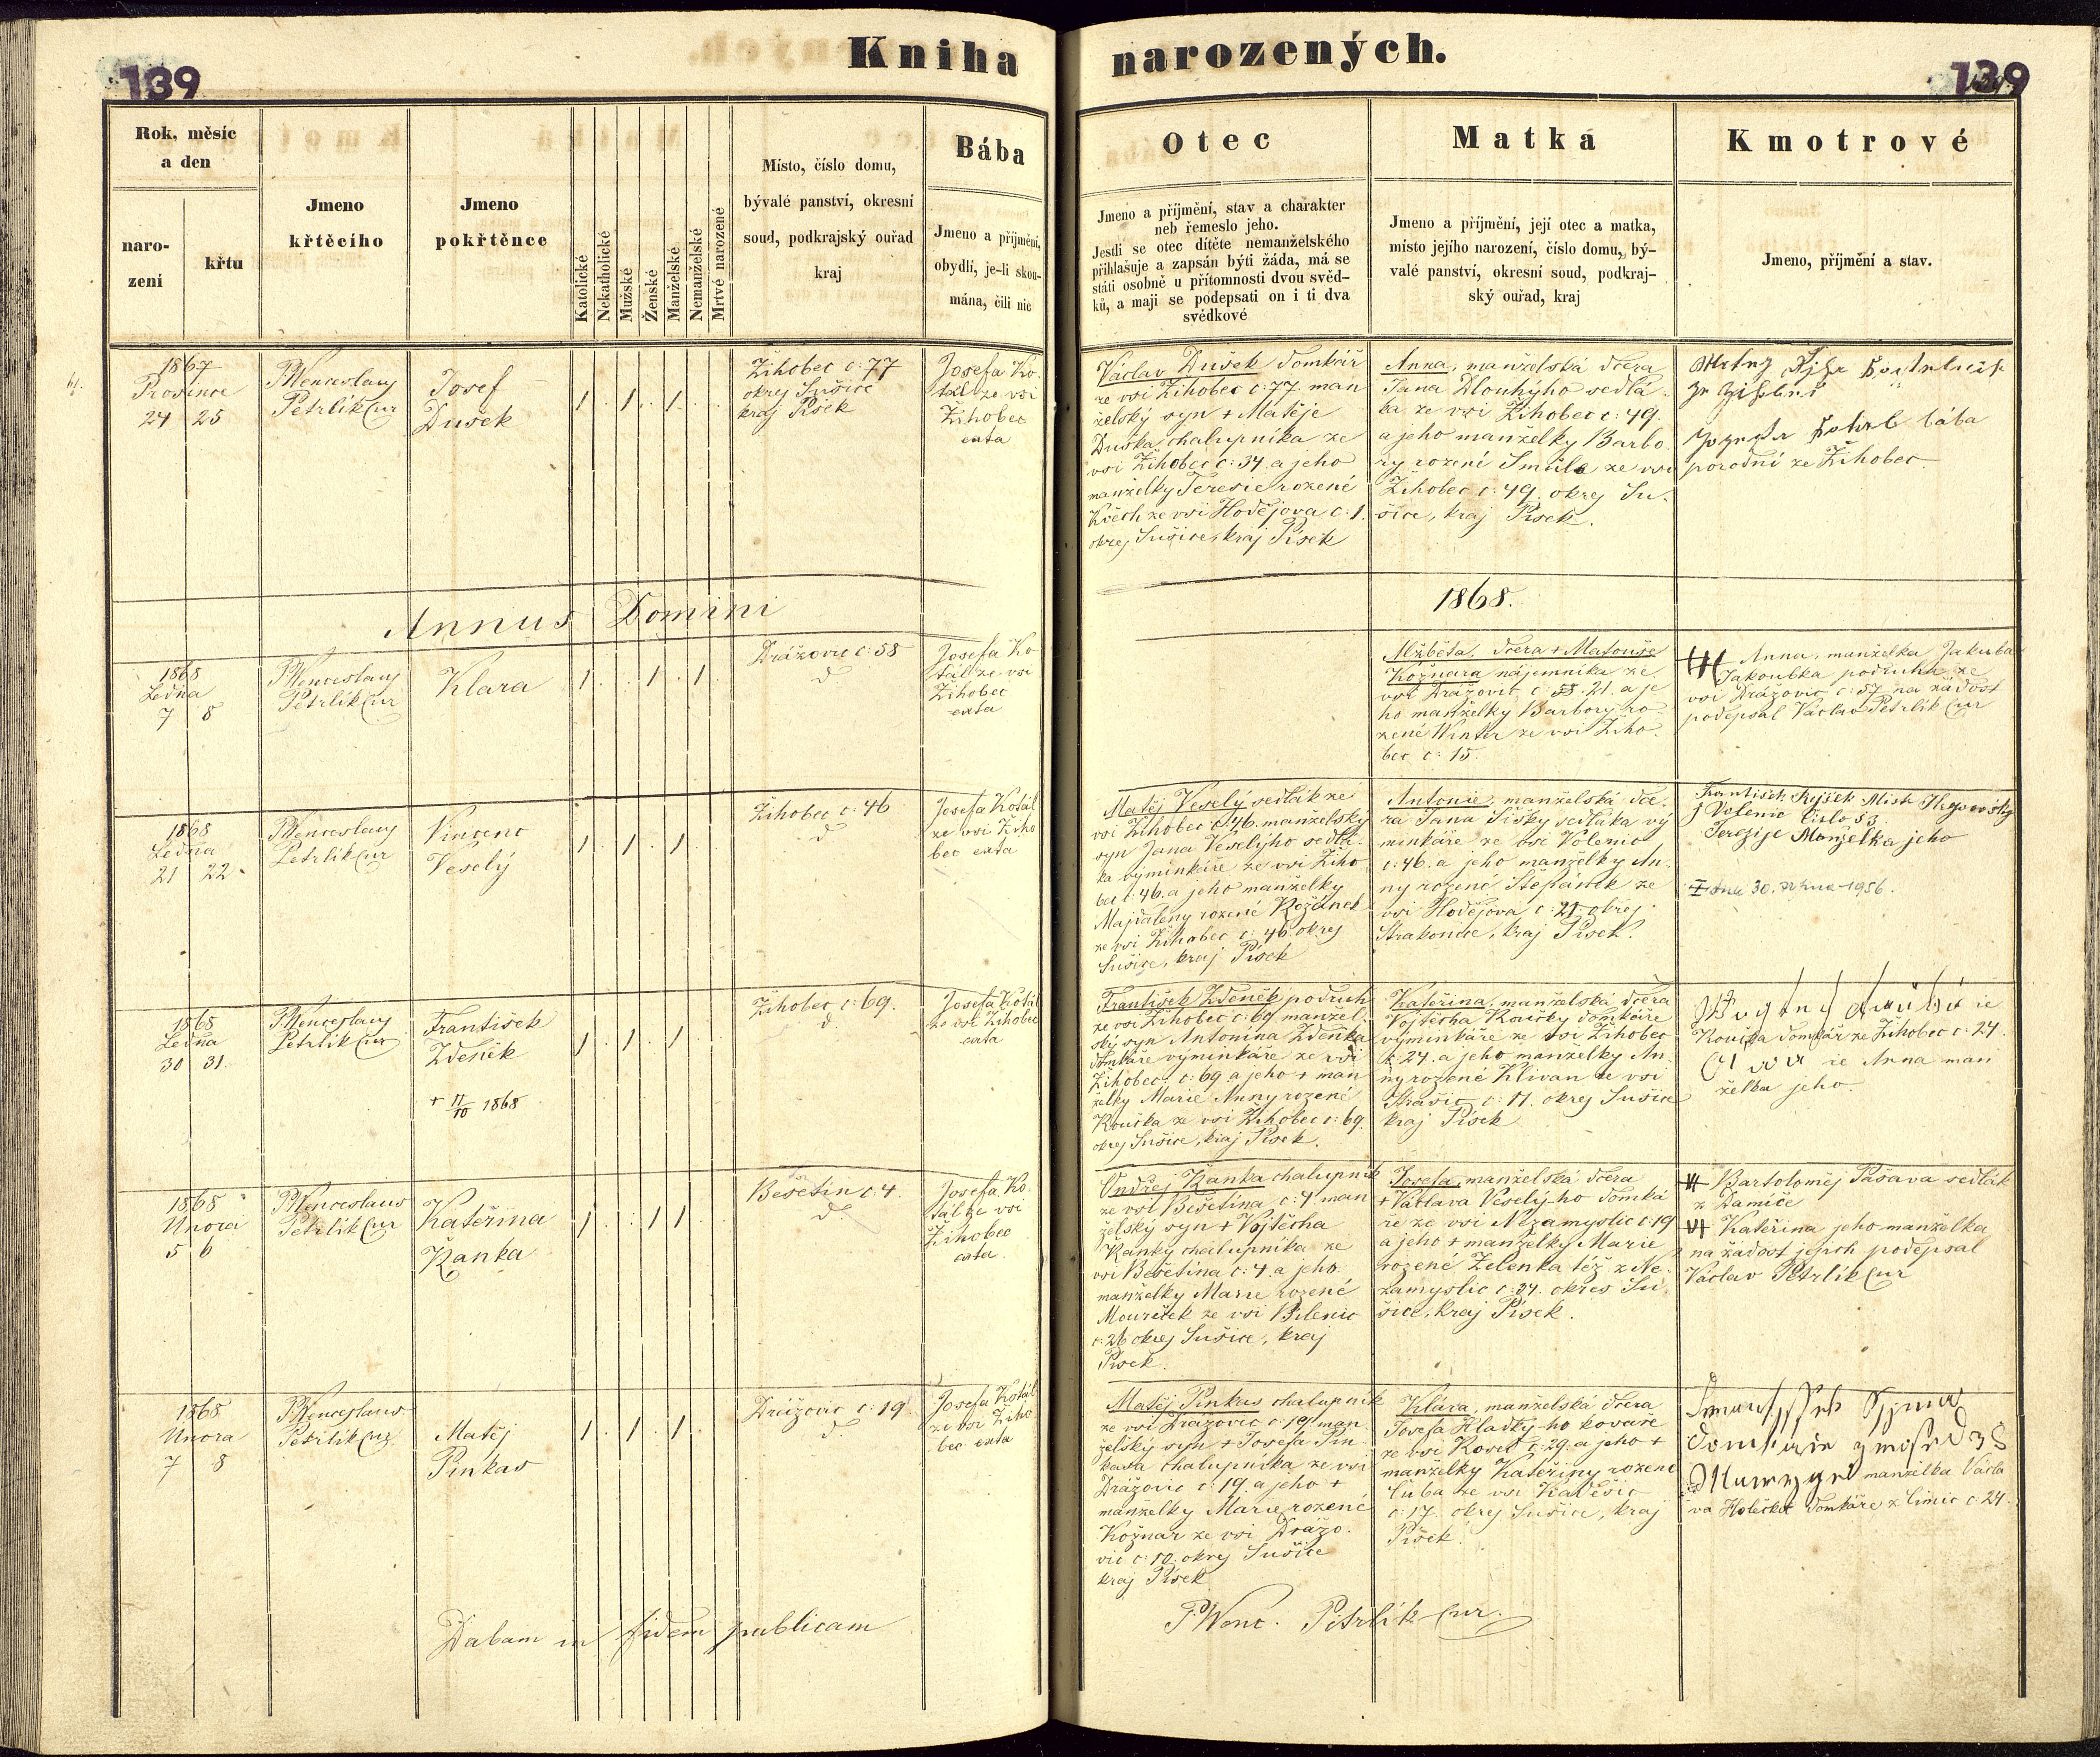 139
Kniha narozených.
139
Rok, měsíc
a den
naro-
zení
křtu
Jmeno
křtěcího
Jmeno
pokřtěnce
Katolické
Nekatholické
Mužské
Ženské
Manželské
Nemanželské
Mrtvé narozené
Místo, číslo domu,
bývalé panství, okresní
soud, podkrajský ouřad
kraj
Bába
Jmeno a příjmění,
obydlí, je-li skou-
mána, čili nic
Otec
Jmeno a příjmění, stav a charakter
neb řemeslo jeho.
Jestli se otec dítěte nemanželského
přihlašuje a zapsán býti žáda, má se
státi osobně u přítomnosti dvou svěd-
ků, a mají se podepsati on i ti dva
svědkové
Matka
Jmeno a příjmění, její otec a matka,
místo jejího narození, číslo domu, bý-
valé panství, okresní soud, podkraj-
ský ouřad, kraj
Kmotrové
Jmeno, příjmění a stav.
1867
Prosince
24 25
P. Wenceslaus
Petrlík Cur
Josef
Dušek
1 . 1 . 1 . .
Žihobec č: 77
okrej Sušice
kraj Písek
Josefa Ko-
tál ze vsi
Žihobec
exta
Václav Dušek domkář
ze vsi Žihobec č: 77. man
želský syn + Matěje
Duška chalupníka ze
vsi Žihobec č: 34. a jeho
manželky Teresie rozené
ze vsi Hodějova č: 1.
okrej Sušice, kraj Písek
Anna, manželská dcera
Jana Dlouhýho sedlá-
ka ze vsi Žihobec č: 49.
a jeho manželky Barbo
ry rozené Smůla ze vsi
Žihobec č: 49. okrej Su-
šice, kraj Písek.
bába
porodní ze Žihobec
Annus Domini
1868.
1868
Ledna
7 8
P. Wenceslaus
Petrlík Cur
Klara
1 . . 1 . 1 .
Drážovic č: 58
d.
Josefa Ko
tál ze vsi
Žihobec
exta
Alžběta, dcera + Matouše
Kožnara nájemníka ze
vsi Drážovic č: 21. a je
ho manželky Barbory ro
zené Winter ze vsi Žiho-
bec č: 15.
Anna, manželka Jakuba
Jakoubka podruha ze
vsi Drážovic č: 57 na žádost
podepsal Václav Petrlík Cur
1868
Ledna
21 22.
P. Wenceslaus
Petrlík Cur
Vincenc
Veselý
1 . 1 . 1 . .
Žihobec č: 46
d
Josefa Kotál
ze vsi Žiho
bec exta
Matěj Veselý sedlák ze
vsi Žihobec č. 46. manželský
syn Jana Veselýho sedlá-
ka výminkáře ze vsi Žiho
bec č: 46. a jeho manželky
Majdaleny rozené
ze vsi Žihobec č: 46. okrej
Sušice, kraj Písek
Antonie, manželská dce-
ra Jana Šišky sedláka vý
minkáře ze vsi Volenic
č: 46. a jeho manželky An-
ny rozené Štěpánek ze
vsi Hodějova č: 21. okrej
Strakonice, kraj Písek.
František Rejšek
z Volenic číslo 53
Terezije Manželka jeho
dne 30. 1956.
1868
Ledna
30 31.
P. Wenceslaus
Petrlík Cur
František
Zdeněk
+ 11/10 1868
1 . 1 . 1 . .
Žihobec č: 69.
d.
Josefa Kotál
ze vsi Žihobec
exta
František Zdeněk podruh
ze vsi Žihobec č: 69 manžel-
ský syn Antonína Zdeňka
domkáře výminkáře ze vsi
Žihobec č: 69. a jeho + man
želky Marie Anny rozené
Koučka ze vsi Žihobec č: 69.
okrej Sušice, kraj Písek.
Kateřina, manželská dcera
Vojtěcha Koučky domkáře
výminkáře ze vsi Žihobec
č: 24. a jeho manželky An-
ny rozené Klivan ze vsi
Strašic č: 11. okrej Sušice
kraj Písek
Koučka domkář ze Žihobec č: 24.
Anna man
želka jeho
1868
Února
5 6
P. Wenceslaus
Petrlík Cur
Kateřina
Kanka
1 . . 1 1 . .
Bešetín č: 4
d.
Josefa Ko-
tál ze vsi
Žihobec
exta.
Ondřej Kanka chalupník
ze vsi Bešetína č: 4 man
želský syn + Vojtěcha
Kanky chalupníka ze
vsi Bešetína č: 4. a jeho
manželky Marie rozené
Mouriček ze vsi Bilenic
č: 26 okrej Sušice, kraj
Písek.
Josefa, manželská dcera
+ Václava Veselý-ho domká
ře ze vsi Nezamyslic č: 19
a jeho + manželky Marie
rozené Zelenka též z Ne-
zamyslic č: 34. okres Su
šice, kraj Písek.
Bartoloměj Pašava sedlák
z Damíče
Kateřina jeho manželka
na žádost jejich podepsal
Václav Petrlík Cur
1868
Února
7 8
P. Wenceslaus
Petrlík Cur
Matěj
Pinkas
1 . 1 . 1 . .
Drážovic č: 19
d.
Josefa Kotál
ze vsi Žiho
bec exta
Matěj Pinkas chalupník
ze vsi Drážovic č: 19. man-
želský syn + Josefa Pin-
kasa chalupníka ze vsi
Drážovic č: 19. a jeho +
manželky Marie rozené
Kožnar ze vsi Drážo-
vic č: 10. okrej Sušice
kraj Písek
Klára, manželská dcera
Josefa Hladký-ho kováře
ze vsi č: 29. a jeho +
manželky Kateřiny rozené
Cuba ze vsi Kadešic
č: 17. okrej Sušice, kraj
Písek.
manželka Václa
va Holečka domkáře z Limic č: 24.
Dabam in fidem publicam
P. Wenc. Petrlík Cur.